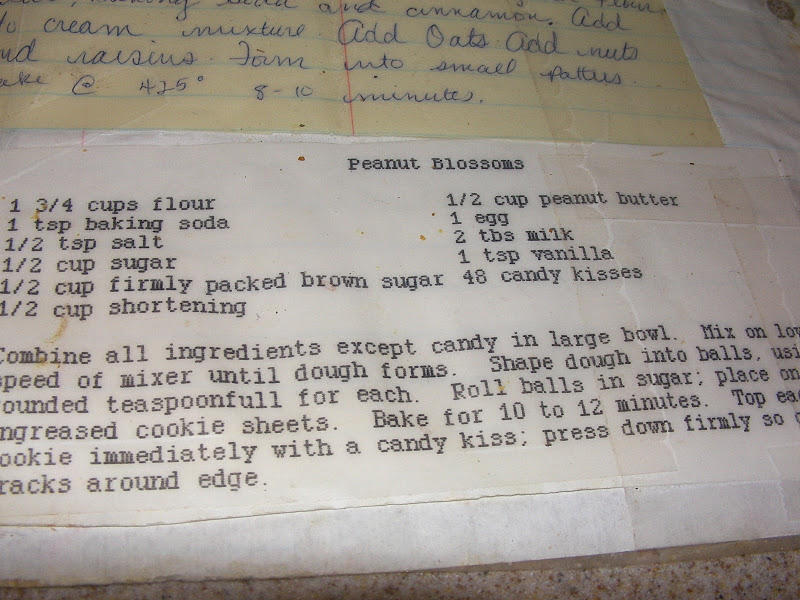 baking soda and cinnamon. Add
to cream mixture Add Oats Add nuts
nd raisins. Form into small patties.
ake @ 425° 8-10 minutes.
Peanut Blossoms
1 3/4 cups flour
1 tsp baking soda
1/2 tsp salt
1/2 cup sugar
1/2 cup firmly packed brown sugar
1/2 cup shortening
1/2 cup peanut butter
1 egg
2 tbs milk
1 tsp vanilla
48 candy kisses
Combine all ingredients except candy in large bowl. Mix on low
speed of mixer until dough forms. Shape dough into balls, usi
ounded teaspoonfull for each. Roll balls in sugar; place on
ngreased cookie sheets. Bake for 10 to 12 minutes. Top eac
ookie immediately with a candy kiss; press down firmly so c
racks around edge.